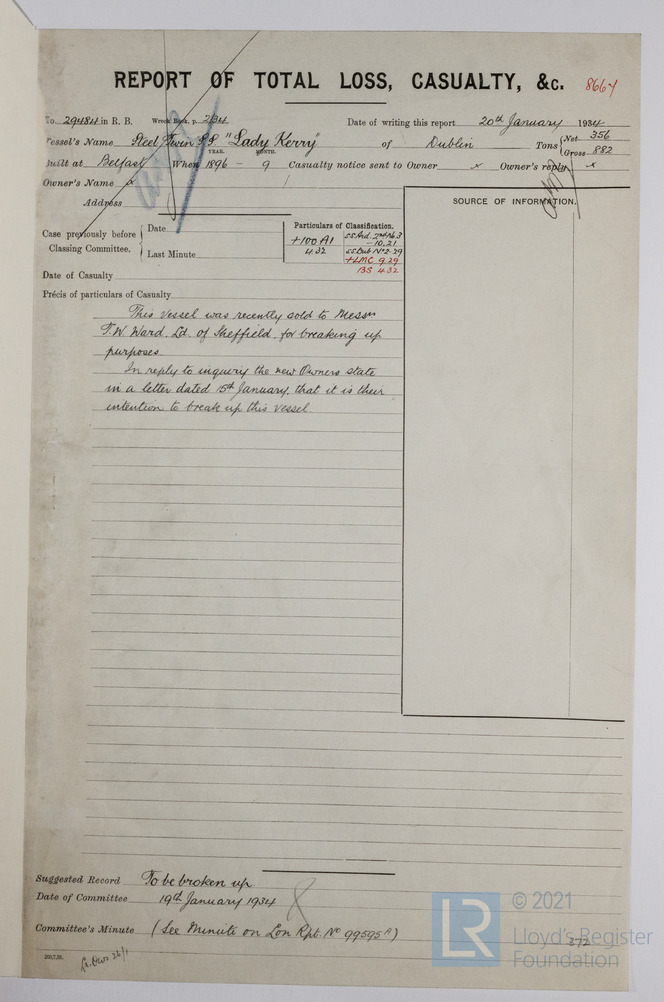 REPORT OF TOTAL LOSS, CASUALTY, &c. 8667
No. 29484 in R. B. Wreck Book, p. 2/34 Date of writing this report 20th January 1934
Vessel's Name Steel Twin S.S. "Lady Kerry" of Dublin Tons Net 356
Gross 882
YEAR. MONTH.
Built at Belfast When 1896 - 9 Casualty notice sent to Owner x Owner's reply x
Owner's Name x
Address
SOURCE OF INFORMATION.
Case previously before Classing Committee.
Date
Last Minute
Particulars of Classification.
+100A1
4.32
- 10.21
+LMC 9.29
BS 4.32
Date of Casualty
Précis of particulars of Casualty
This vessel was recently sold to Messrs
T.W. Ward, Ld. of Sheffield, for breaking up
purposes
In reply to inquiry the new Owners state
in a letter dated 15th January, that it is their
intention to break up this vessel.
Suggested Record To be broken up
Date of Committee 19th January 1934
Committee's Minute (See Minute on Lon Rpt. No 99595A)
372
© 2021
Lloyd's Register
Foundation
LR